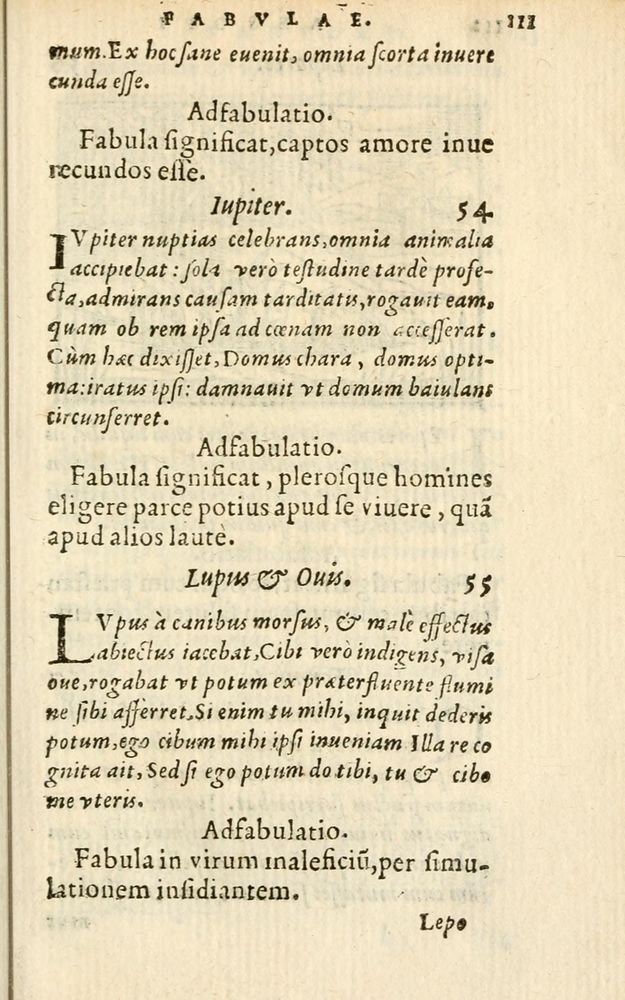 FABVLAE. 111
mum. Ex hoc sane euenit, omnia scorta inuere
cunda esse.
Adfabulatio.
Fabula significat, captos amore inue
recundos esse.
Iupiter. 54
IVpiter nuptias celebrans, omnia animalia
accipiebat: sola verò testudine tardè profe-
cta, admirans causam tarditatis, rogauit eam,
quam ob rem ipsa ad cœnam non accesserat.
Cùm hæc dixisset, Domus chara, domus opti-
ma: iratus ipsi: damnauit vt domum baiulans
circunferret.
Adfabulatio.
Fabula significat, plerosque homines
eligere parce potius apud se viuere, quã
apud alios lautè.
Lupus & Ouis. 55
LVpus à canibus morsus, & malè effectus
abiectus iacebat, Cibi verò indigens, visa
oue, rogabat vt potum ex præterfluente flumi
ne sibi afferret, Si enim tu mihi, inquit dederis
potum, ego cibum mihi ipsi inueniam Illa re co
gnita ait, Sed si ego potum do tibi, tu & cibo
me vteris.
Adfabulatio.
Fabula in virum maleficiũ, per simu-
lationem insidiantem.
Lepo